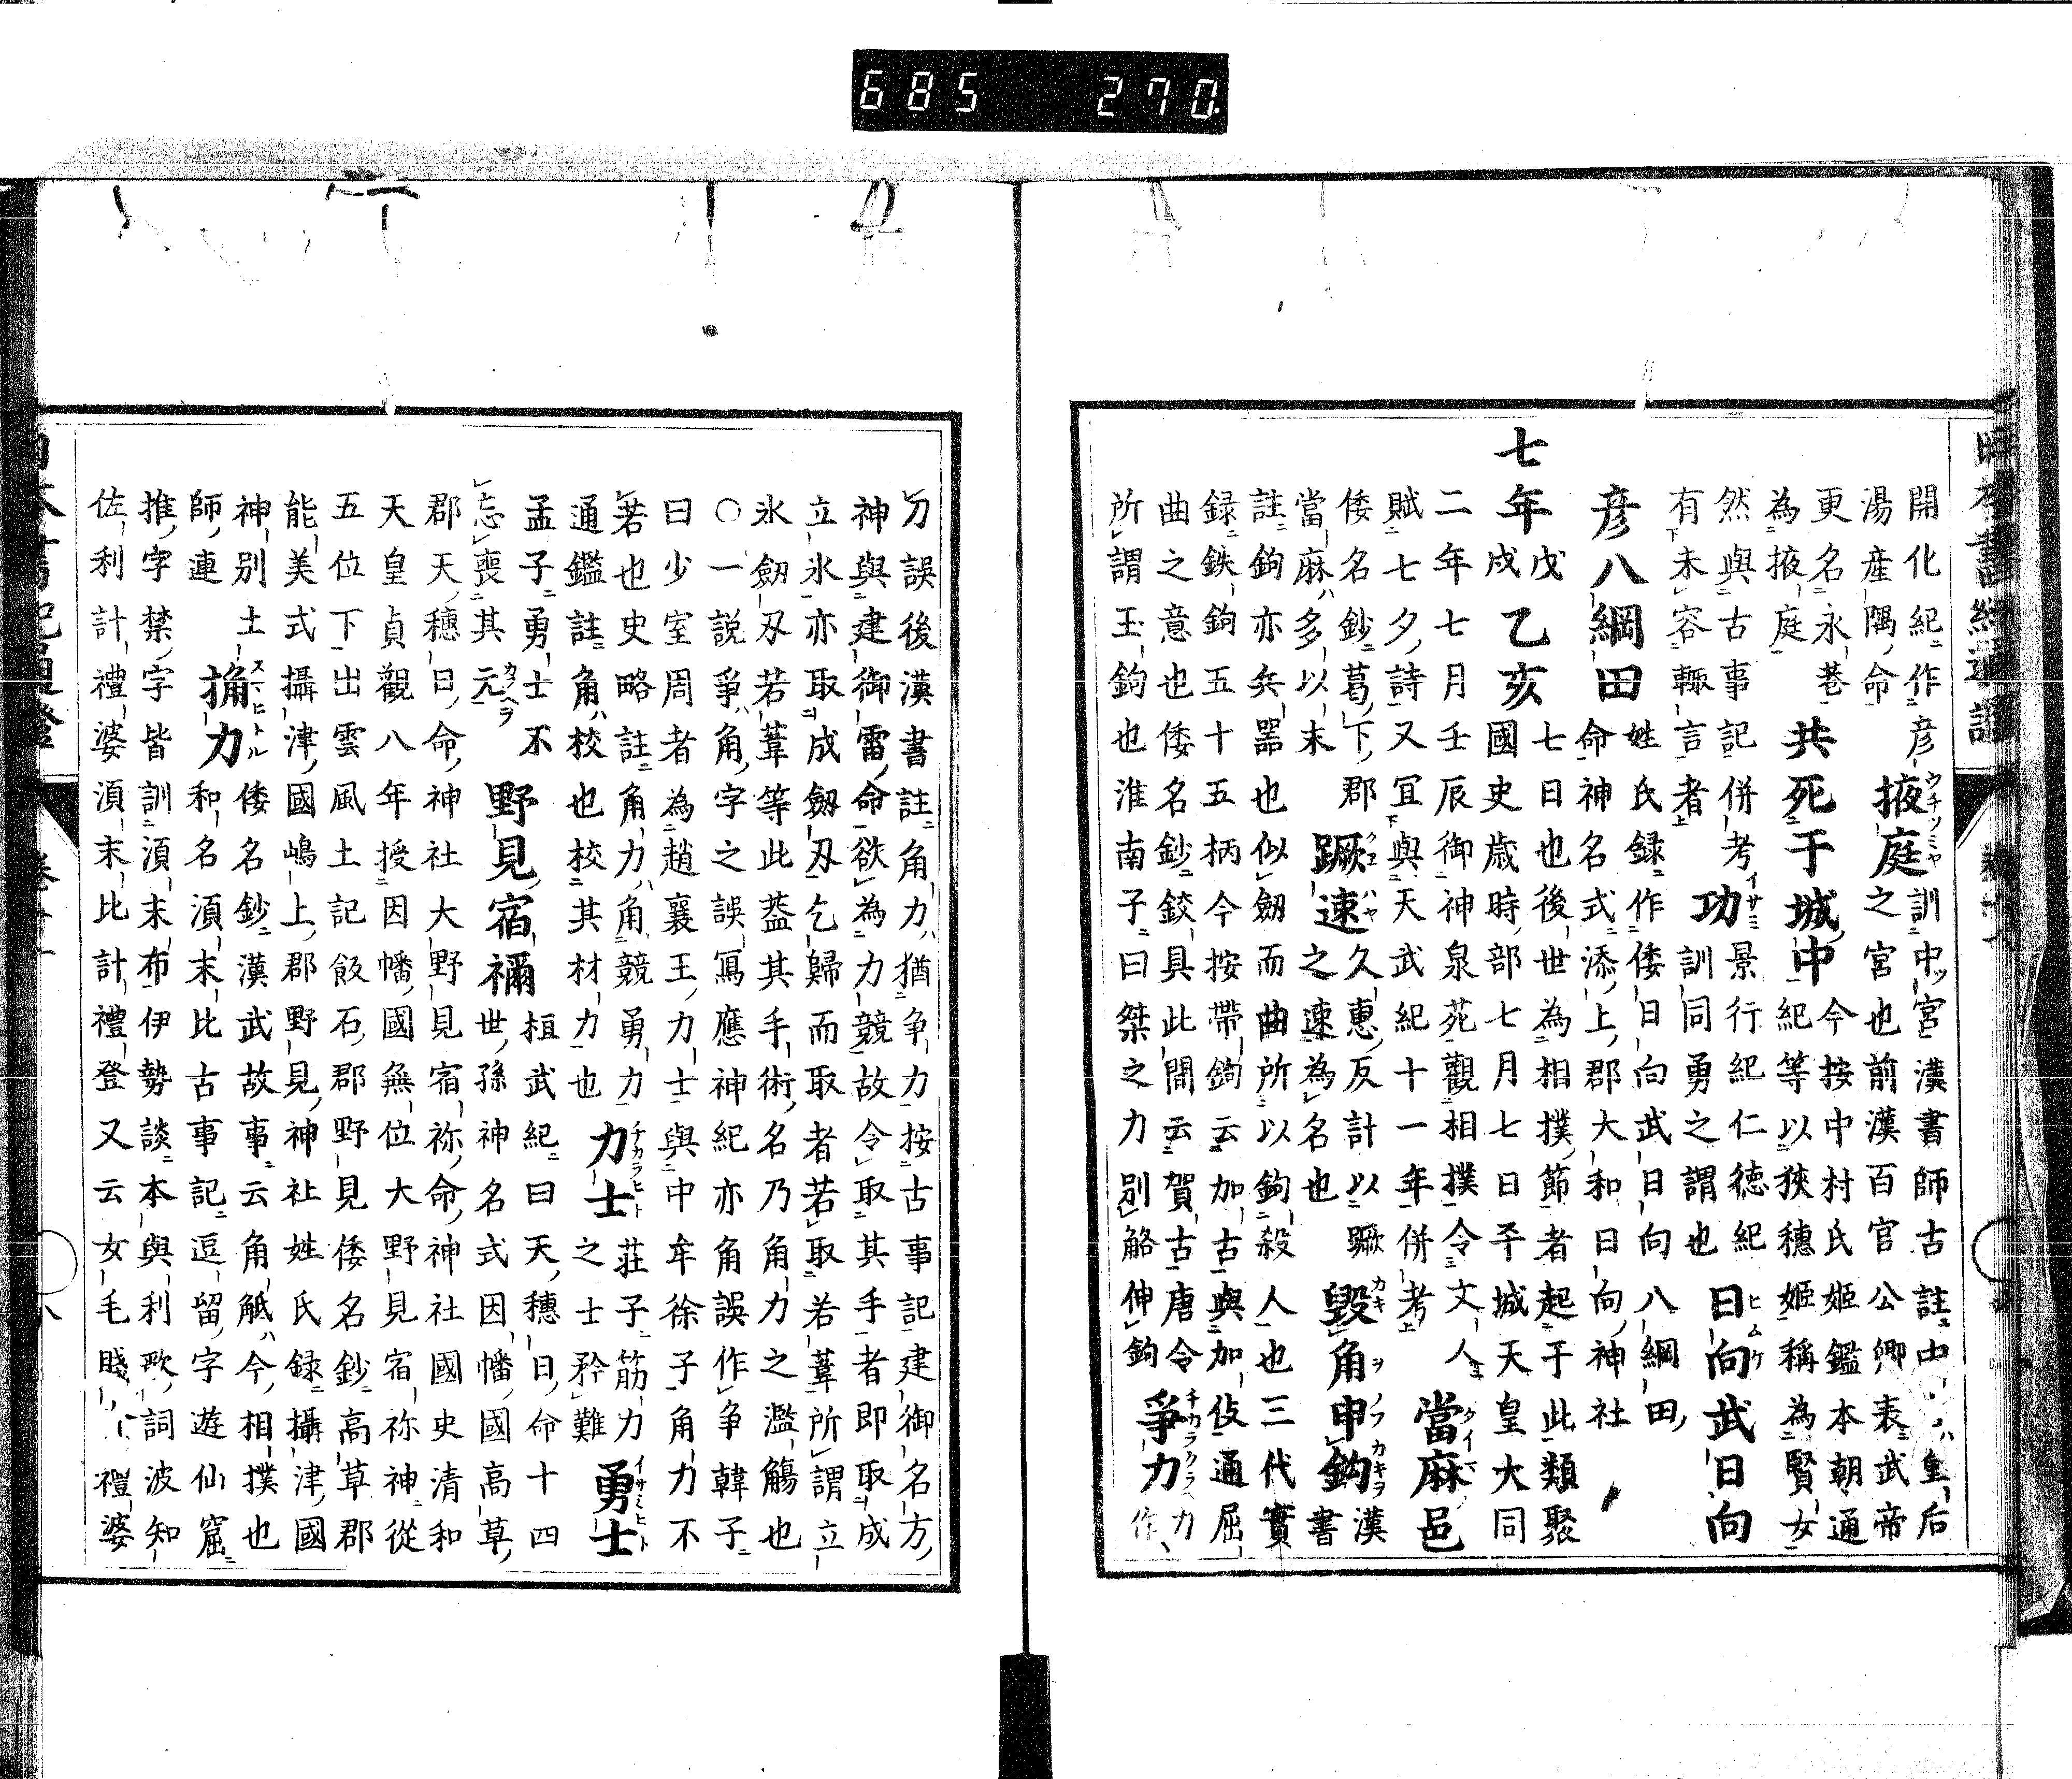 685 270
開化紀作彦 掖庭 訓中宮漢書師古註中皇后
湯産隅命 之宮也前漢百官公卿表武帝
更名永巷 共死于城中 今按中村氏姫鑑本朝通
為掖庭 紀等以狹穗姫稱為賢女
然與古事記併考 功 景行紀仁徳紀 日向武日向
有未容輙言者 訓同勇之謂也
彦八綱田 姓氏録作倭日向武日向八綱田
命神名式添上郡大和日向神社
七年 戊戌 乙亥 七日也後世為相撲節者起于此類聚
國史歳時部七月七日平城天皇大同
二年七月壬辰御神泉苑觀相撲令文人 當麻邑
賦七夕詩又宜與天武紀十一年併考
倭名鈔葛下郡 蹶速 久惠反計以蹶 毀角申鈎 漢
當麻多以末 之速為名也 書
註鉤亦兵噐也似劔而曲所以鉤殺人也三代實
録鉄鉤五十五柄今按帶鉤云加古與加伎通屈
曲之意也倭名鈔鉸具此間云賀古唐令 爭力
所謂玉鉤也淮南子曰桀之力別觡伸鉤 作
刀誤後漢書註角力猶争力按古事記建御名方
神與建御雷命欲為力競故令取其手者即取成
立氷亦取成劔刃乞歸而取者若取若葦所謂立
氷劔刃若葦等此葢其手術名乃角力之濫觴也
○一説爭角字之誤冩應神紀亦角誤作争韓子
曰少室周者為趙襄王力士與中牟徐子角力不
若也史略註角力角競勇力 力士 莊子筋力 勇士
通鑑註角校也校其材力也 之士矜難
孟子勇士不 野見宿禰 桓武紀曰天穗日命十四
忘喪其元 世孫神名式因幡國高草
郡天穗日命神社大野見宿祢命神社國史清和
天皇貞觀八年授因幡國無位大野見宿祢神從
五位下出雲風土記飯石郡野見倭名鈔高草郡
能美式攝津國嶋上郡野見神社姓氏録攝津國
神別土 捔力 倭名鈔漢武故事云角觝今相撲也
師連 和名須末比古事記逗留字遊仙窟
推字禁字皆訓須末布伊勢談本與利歌詞波知
佐利計禮婆須末比計禮登又云女毛賤 禮婆